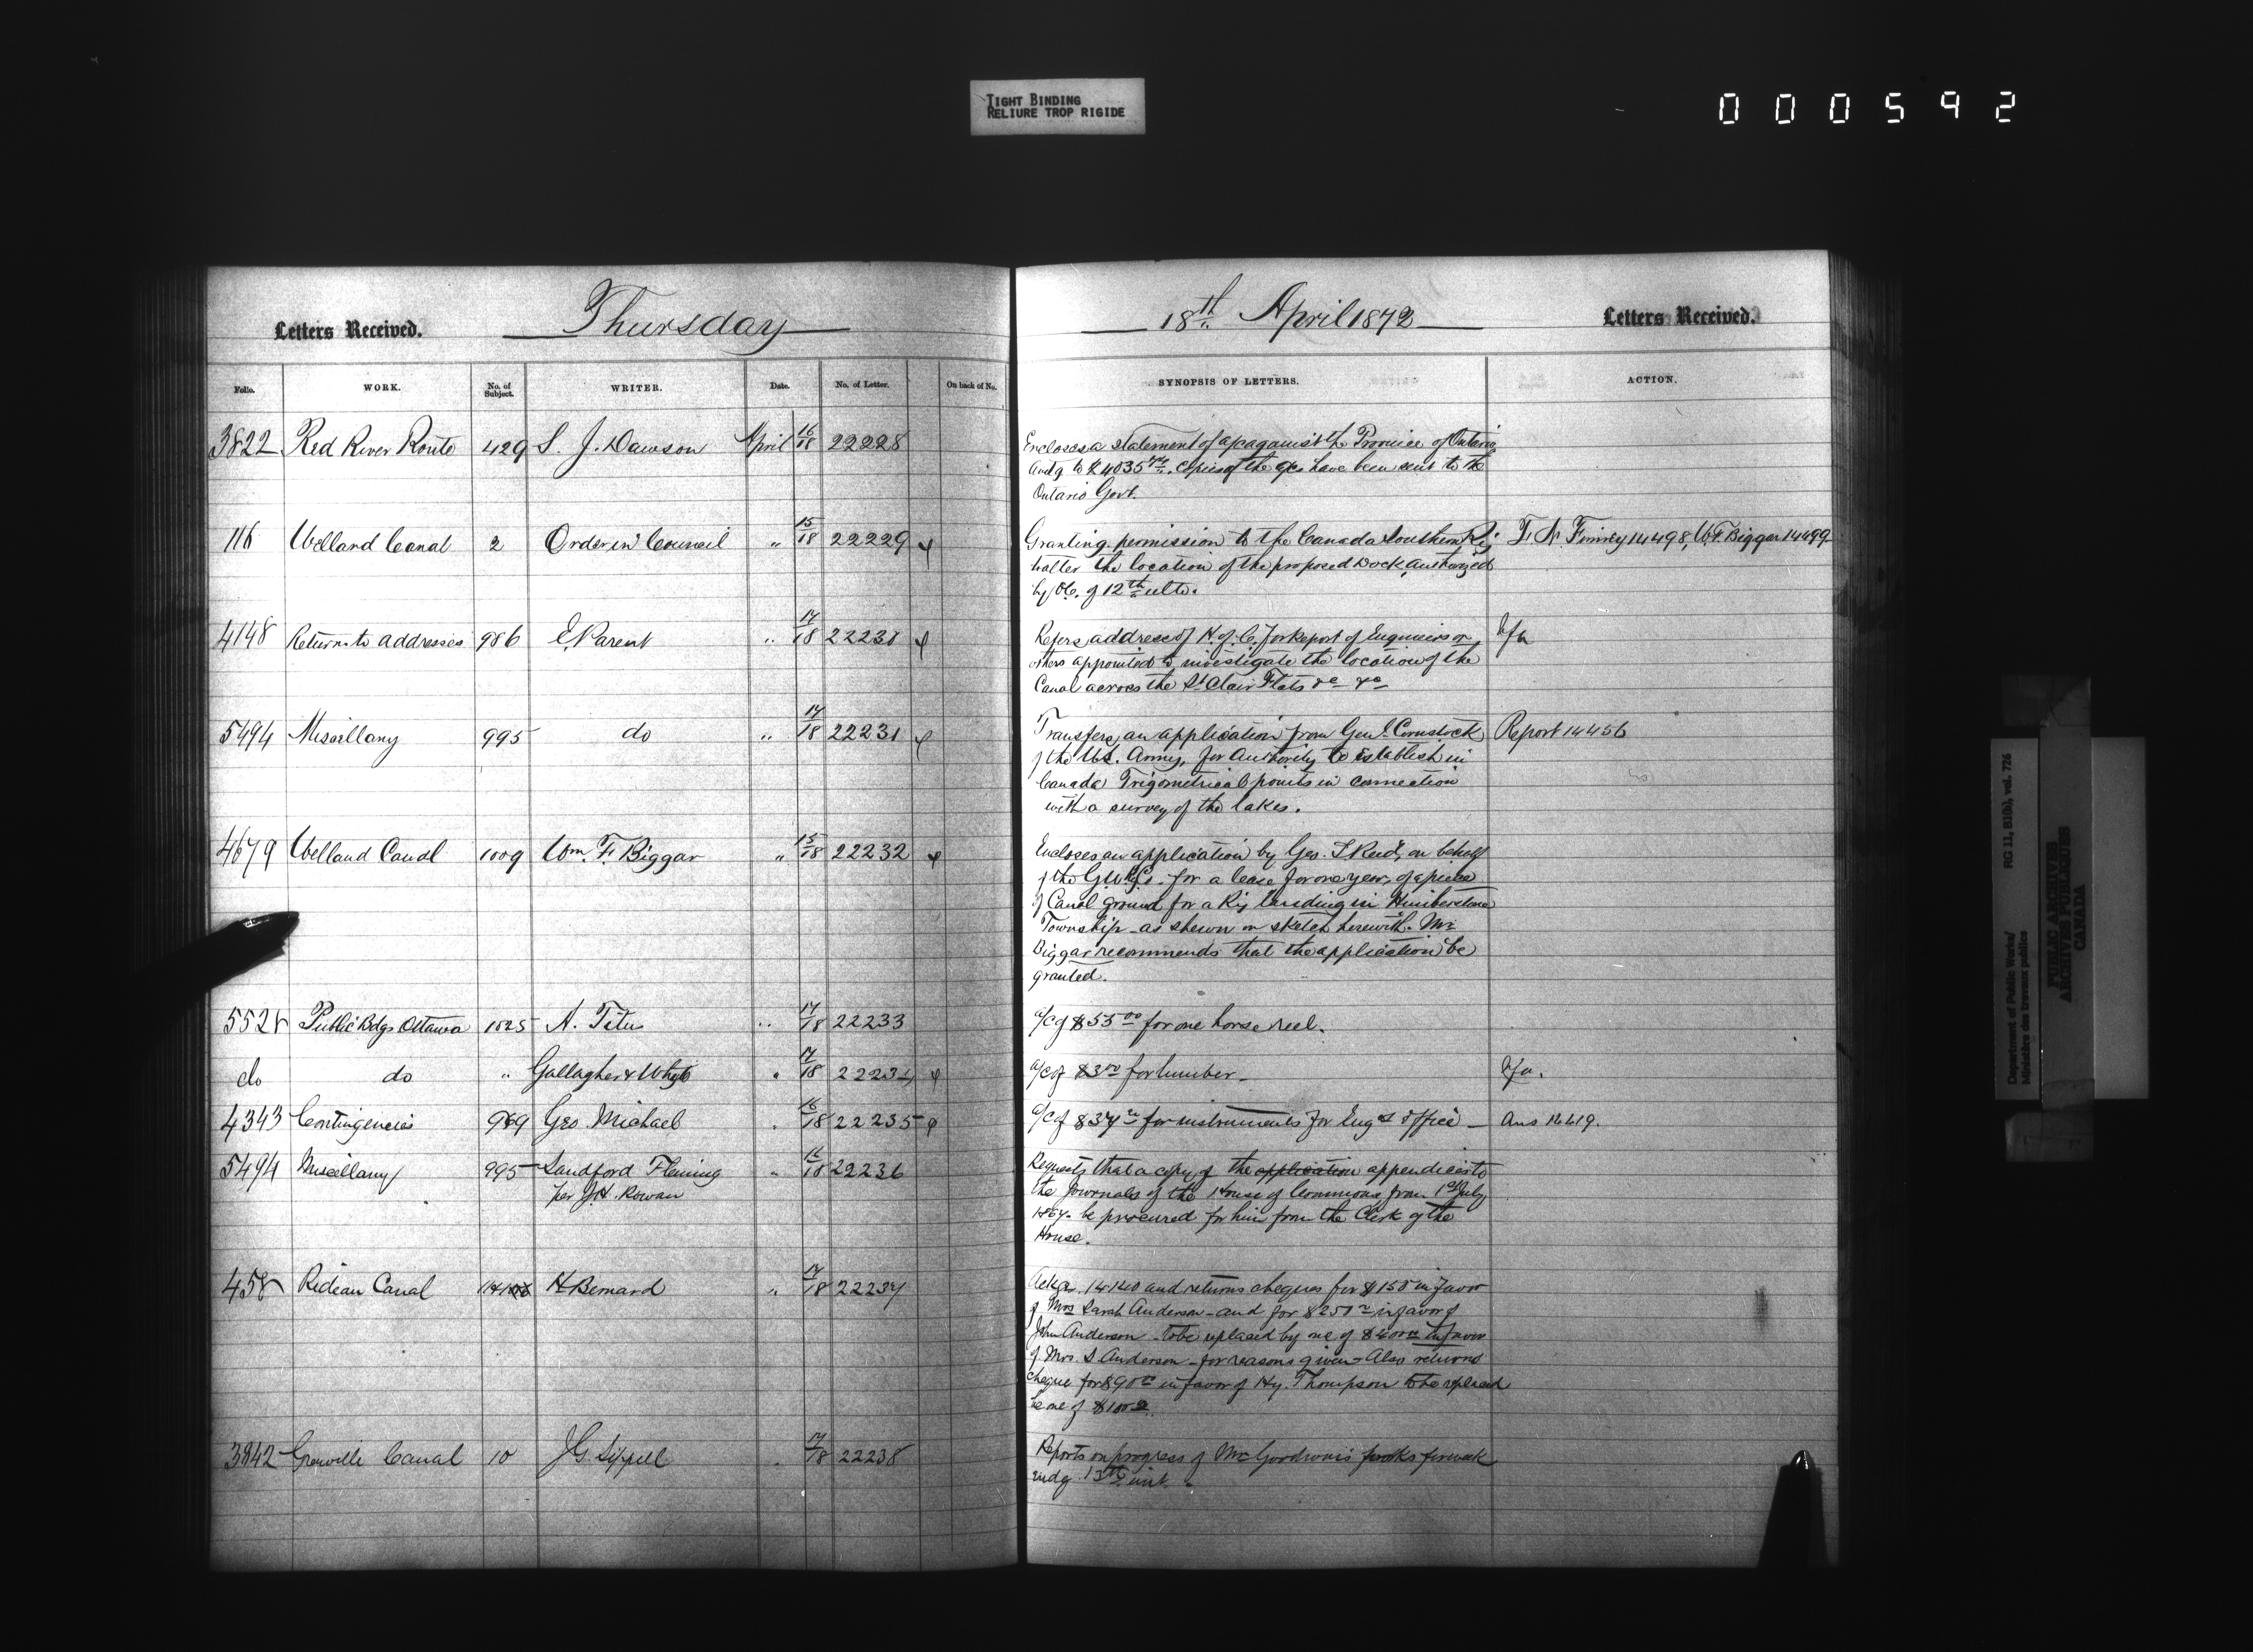 TIGHT BINDING
RELIURE TROP RIGIDE
000592
Letters Received. Thursday
Folio. WORK. No. of Subject. WRITER. Date. No. of Letter. On back of No.
3822 Red River Route 429 S. J. Dawson April 16/18 22228
116 Welland Canal 2 Order in Council " 15/18 22229
4148 Returns to addresses 986 E. Parent " 17/18 22230
5494 Miscellany 995 do " 17/18 22231
4679 Welland Canal 1009 Wm. F. Biggar " 15/18 22232
5528 Public Bdgs Ottawa 1025 A. Titus " 17/18 22233
do do " Gallagher & Whyte " 17/18 22234
4343 Contingencies 969 Geo. Michael " 16/18 22235
5494 Miscellany 995 Sandford Fleming " 18 22236
per J.H. Rowan
458 Rideau Canal H Bernard " 17/18 22237
3842 Grenville Canal 10 J G Sippell " 17/18 22238
18th April 1872 Letters Received.
SYNOPSIS OF LETTERS. ACTION.
Encloses a statement of a/c against the Province of Ontario
amtg to $4035 copies of the a/cs have been sent to the
Ontario Govt.
Granting permission to the Canada Southern Ry T. N. Finney 14498, W. F. Biggar 14499
to alter the location of the proposed Dock, authorized
by O.C. of 12th ulto.
Refers address of H. of C. for Report of Engineers or
others appointed to investigate the location of the
Canal across the St Clair Flats &c &c
Transfers an application from Genl. Comstock Report 14456
of the U.S. Army, for Authority to establish in
Canada Trigometrical points in connection
with a survey of the lakes.
Encloses an application by Geo. T Reid, on behalf
of the for a lease for one year, of a piece
of Canal ground for a Ry landing in Humberstone
Township as shewn on sketch herewith. Mr
Biggar recommends that the application be
granted.
a/c of $55 00 for one horse reel.
a/c of $3 00 for lumber
a/c of $37 for instruments for Engrs office Ans
Requests that a copy of the application appendices to
the Journals of the House of Commons from 1st July
1867 be procured for him from the Clerk of the
House.
Ackgs. 14140 and returns cheques for $150 in favor
of Mrs Sarah Anderson and for $250 in favor of
John Anderson to be replaced by one of $400 in favor
of Mrs. S Anderson for reasons given Also returns
cheque for $90 in favor of Hy. Thompson to be replaced
be one of $100
Reports on progress of Mr Goodwin's works for week
endg. 13th inst.
Department of Public Works/
Ministère des travaux publics
RG 11, B1(b), vol. 726
PUBLIC ARCHIVES
ARCHIVES PUBLIQUES
CANADA